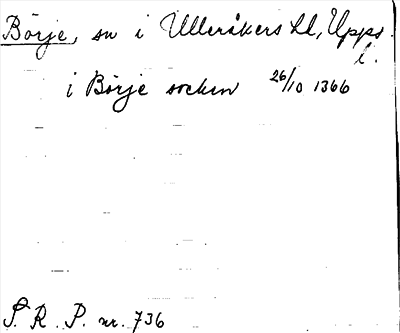 Börje, sn i Ulleråkers hd, Upps. l.
i Börje socken 26/10 1366
S. R. P. nr. 736